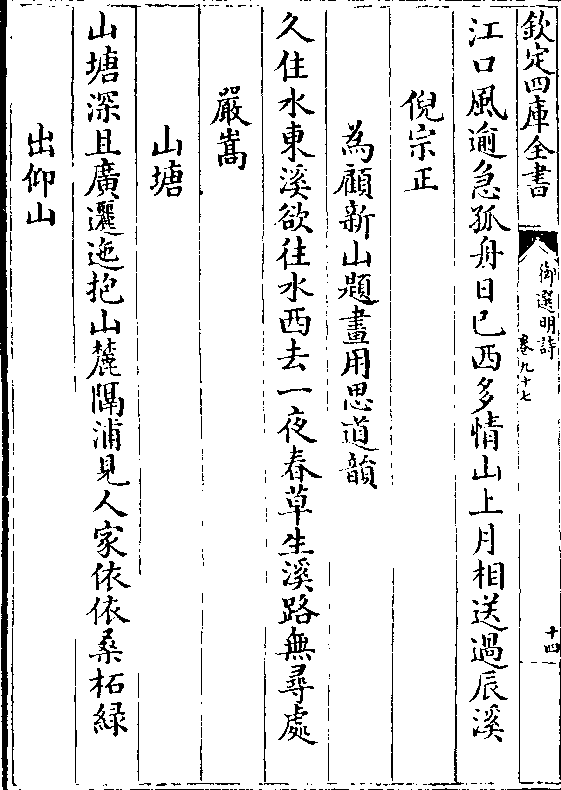 欽定四庫全書
御選明詩
卷九十七
十四
江口風逾急孤舟日已西多情山上月相送過辰溪
倪宗正
為顧新山題畫用思道韻
久住水東溪欲往水西去一夜春草生溪路無尋處
嚴嵩
山塘
山塘深且廣邐迤抱山麓隔浦見人家依依桑柘綠
出仰山